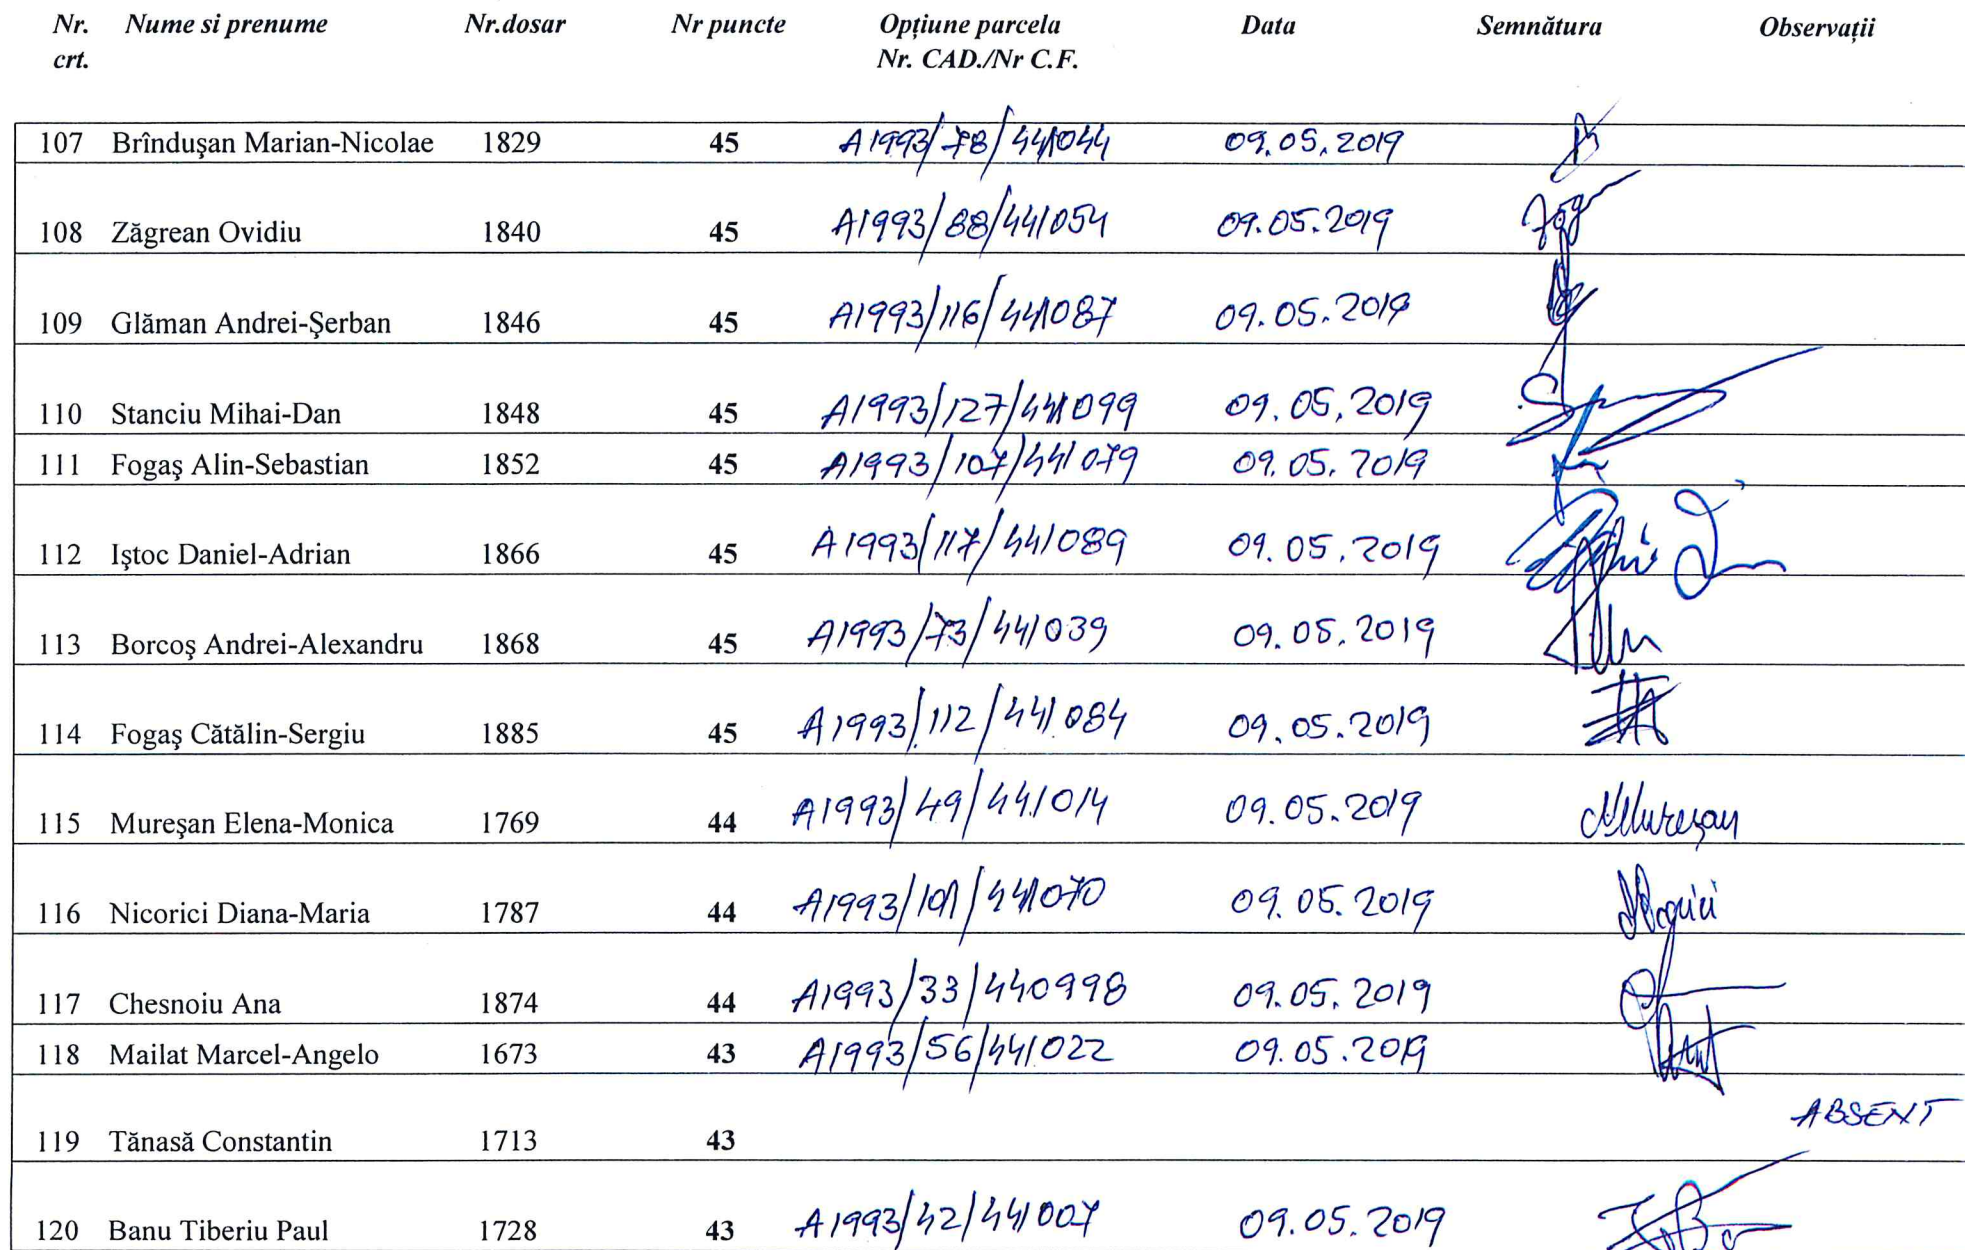 Nr. crt. Nume si prenume Nr.dosar Nr puncte Opțiune parcela Nr. CAD./Nr C.F. Data Semnătura Observații
107 Brîndușan Marian-Nicolae 1829 45 A1993/78/441044 09.05.2019
108 Zăgrean Ovidiu 1840 45 A1993/88/441054 09.05.2019
109 Glăman Andrei-Şerban 1846 45 A1993/116/441087 09.05.2019
110 Stanciu Mihai-Dan 1848 45 A1993/127/441099 09.05.2019
111 Fogaş Alin-Sebastian 1852 45 A1993/107/441079 09.05.2019
112 Iştoc Daniel-Adrian 1866 45 A1993/117/441089 09.05.2019
113 Borcoş Andrei-Alexandru 1868 45 A1993/73/441039 09.05.2019
114 Fogaş Cătălin-Sergiu 1885 45 A1993/112/441084 09.05.2019
115 Mureşan Elena-Monica 1769 44 A1993/49/441014 09.05.2019 MMureşan
116 Nicorici Diana-Maria 1787 44 A1993/101/441070 09.05.2019
117 Chesnoiu Ana 1874 44 A1993/33/440998 09.05.2019
118 Mailat Marcel-Angelo 1673 43 A1993/56/441022 09.05.2019
119 Tănasă Constantin 1713 43 ABSENT
120 Banu Tiberiu Paul 1728 43 A1993/42/441007 09.05.2019